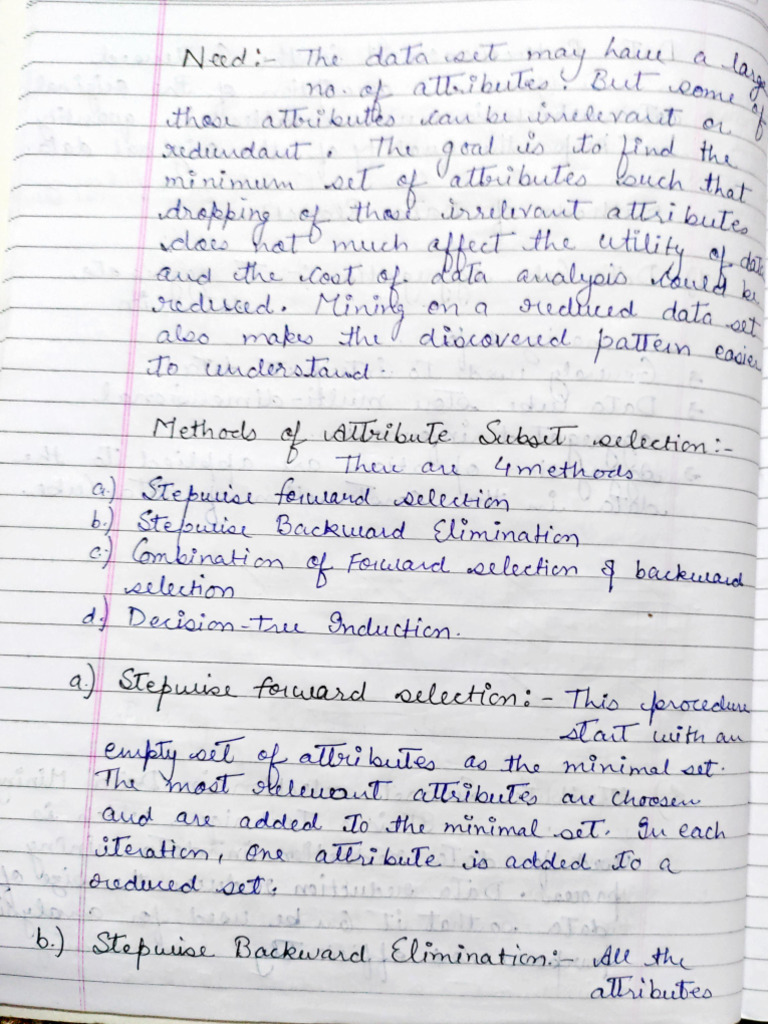 Need:- The data set may have a large
no. of attributes. But some of
those attributes can be irrelevant or
redundant. The goal is to find the
minimum set of attributes such that
dropping of those irrelevant attributes
does not much affect the utility of data
and the cost of data analysis could be
reduced. Mining on a reduced data set
also makes the discovered pattern easier
to understand.
Methods of Attribute Subset selection:-
There are 4 methods
a.) Stepwise forward selection
b.) Stepwise Backward Elimination
c.) Combination of Forward selection & backward
selection
d.) Decision-Tree Induction.
a.) Stepwise forward selection:- This procedure
start with an
empty set of attributes as the minimal set.
The most relevant attributes are choosen
and are added to the minimal set. In each
iteration, one attribute is added to a
reduced set.
b.) Stepwise Backward Elimination:- All the
attributes